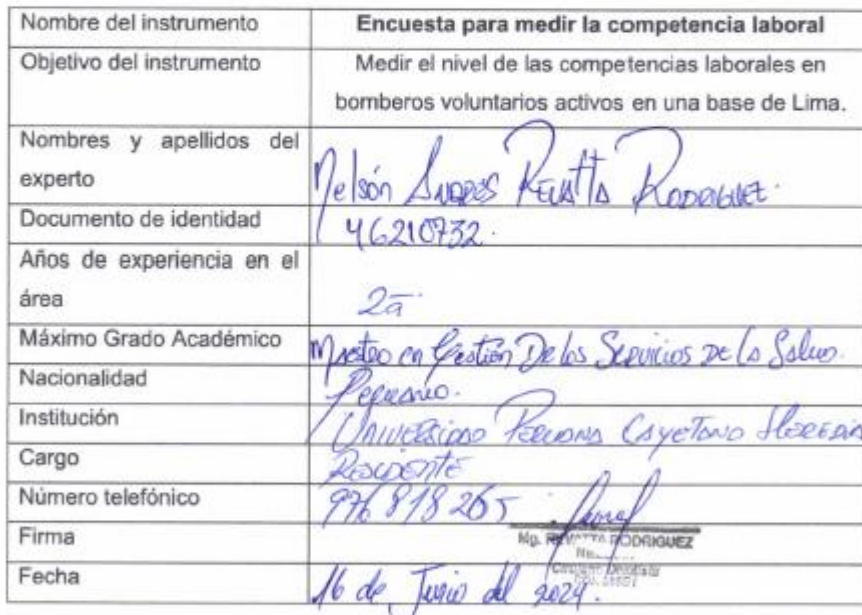 Nombre del instrumento Encuesta para medir la competencia laboral
Objetivo del instrumento Medir el nivel de las competencias laborales en
bomberos voluntarios activos en una base de Lima.
Nombres y apellidos del
experto Nelsón Andres Revatta Rodriguez.
Documento de identidad 46210732.
Años de experiencia en el
área 2a
Máximo Grado Académico Maestro en Gestión De los Servicios De la Salud.
Nacionalidad Peruano.
Institución Universidad Peruana Cayetano Heredia
Cargo Residente
Número telefónico 976 818 265
Firma Mg. REVATTA RODRIGUEZ
Cirujano Dentista
Fecha 16 de Junio del 2024.